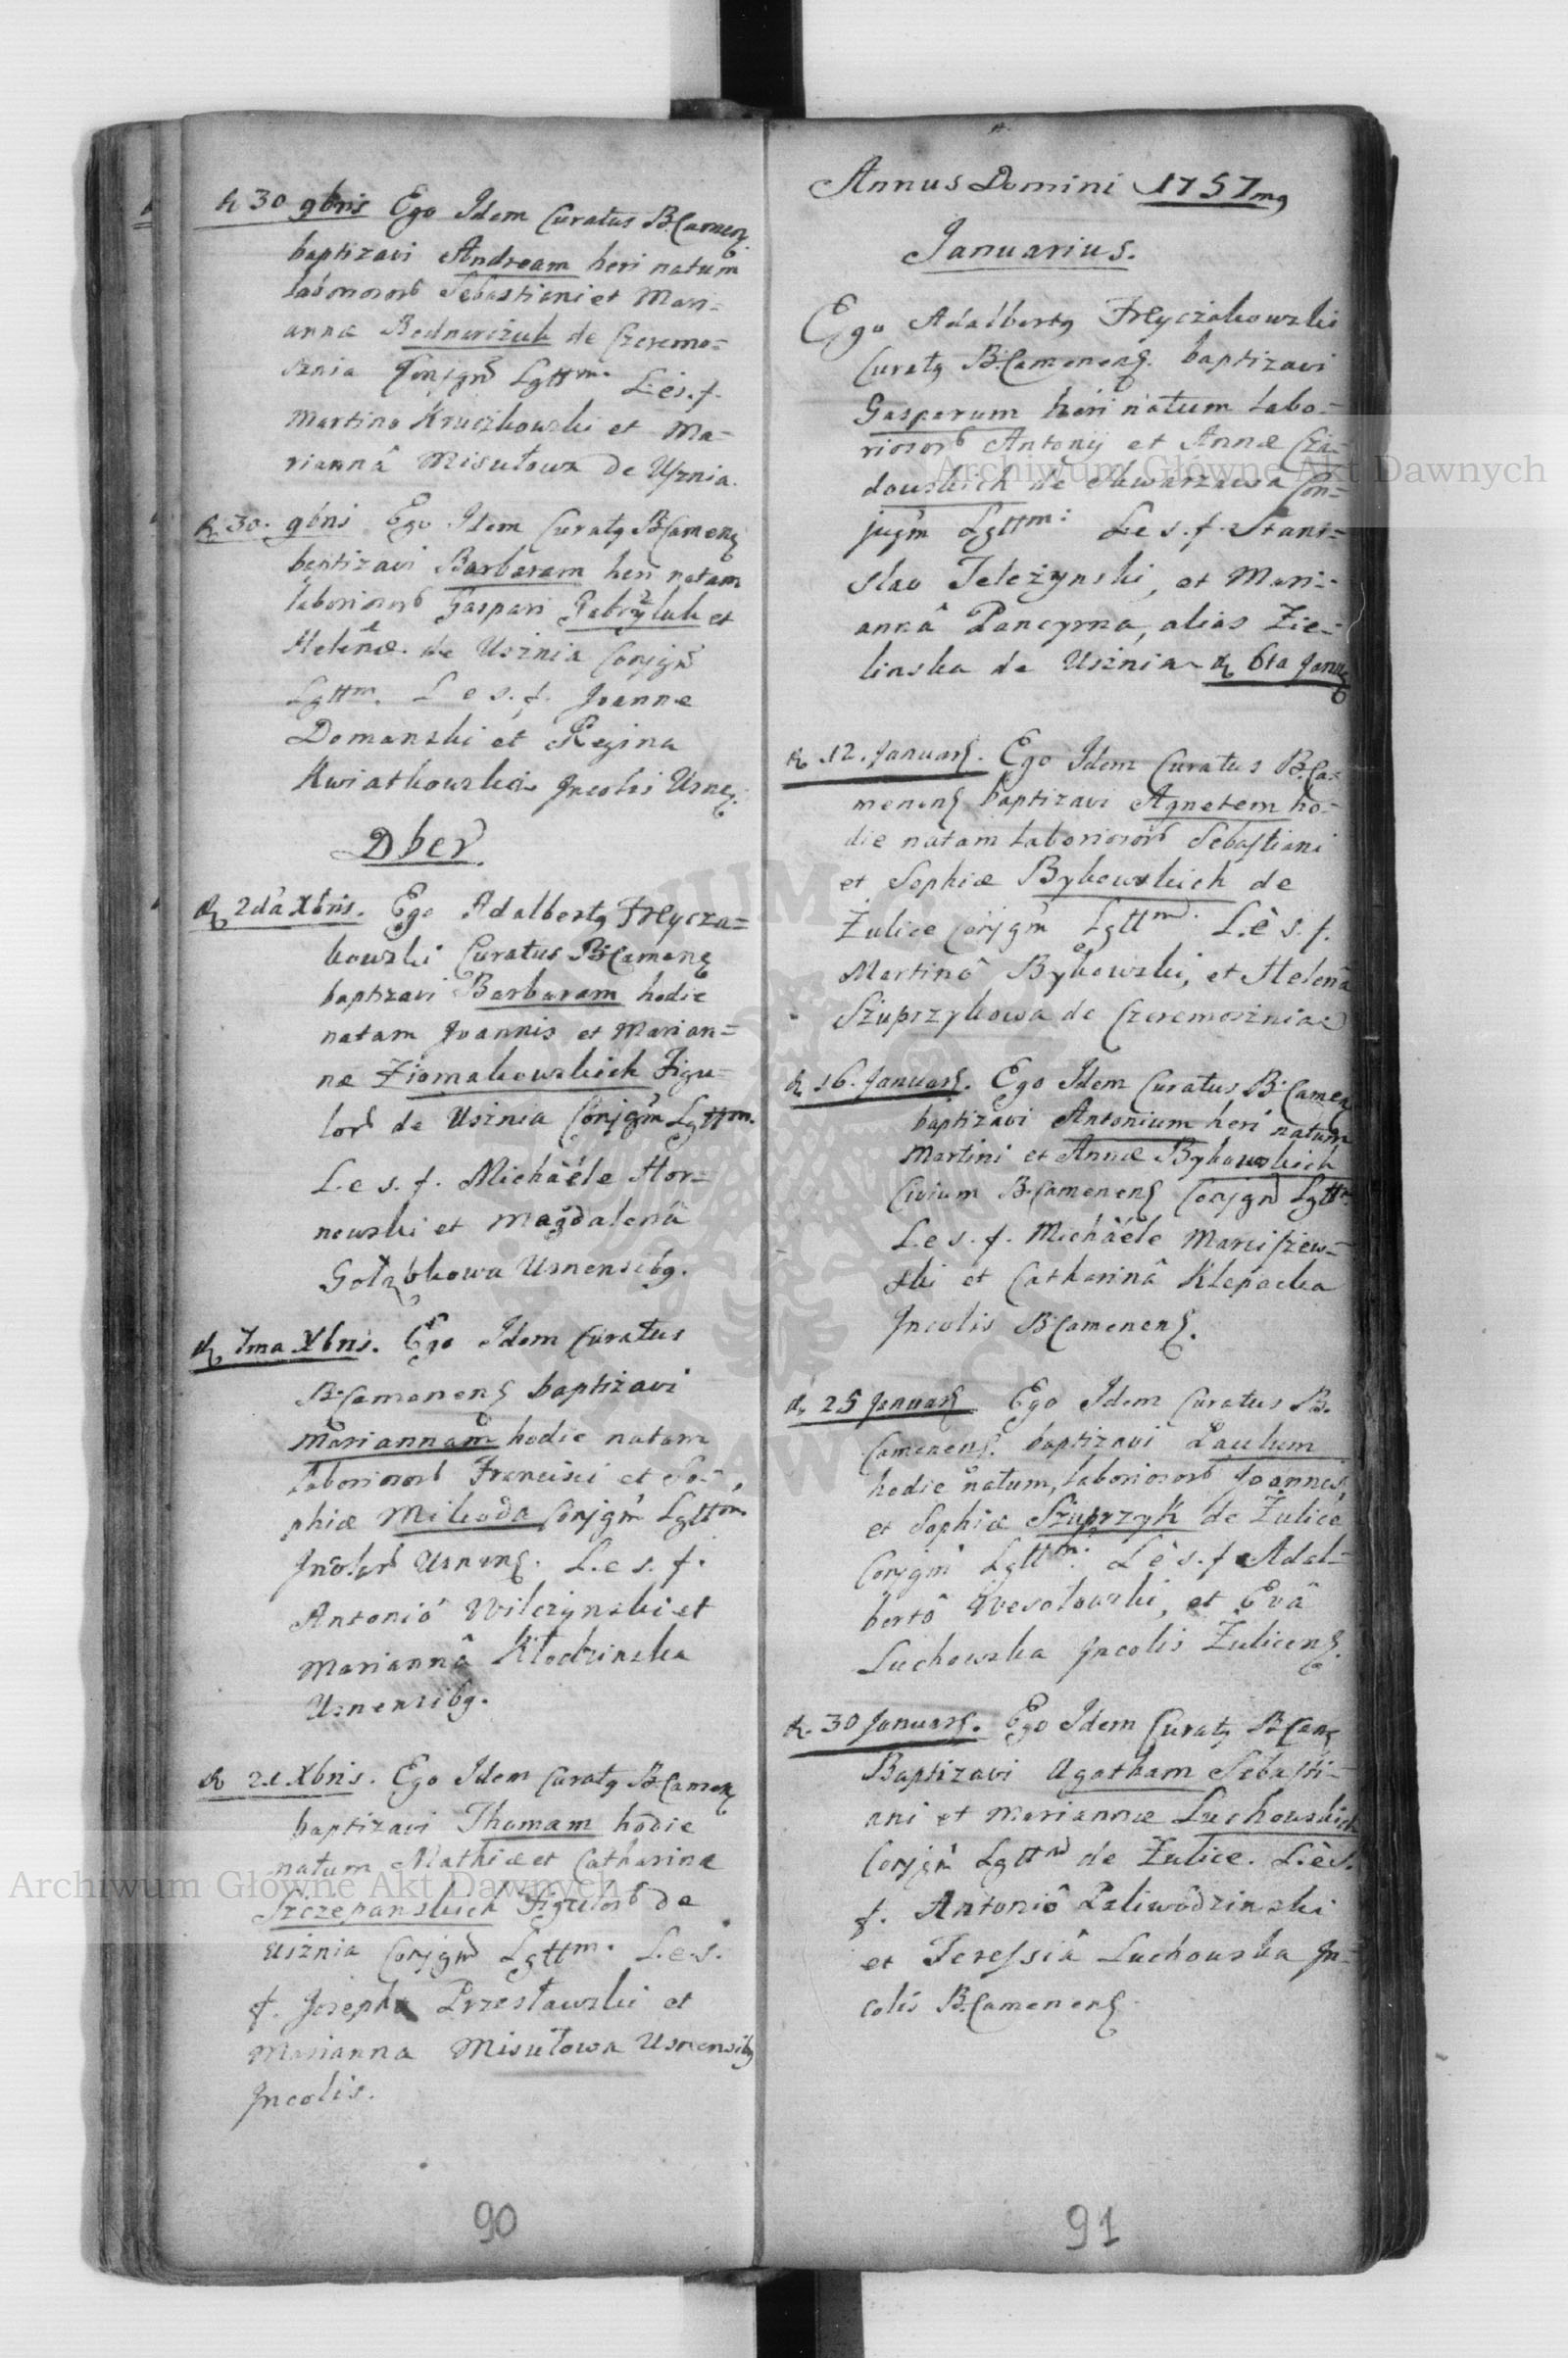 d. 30 9bris Ego Idem Curatus B.Camen.
baptizavi Andream heri natum
laboriosorb Sebastiani et Mari=
annæ Bednarczuk de Czeremo=
sznia Conjgm Lgttm. L.e s. f.
Martino Kruczkowski et Ma=
riannâ Misułowa de Usznia.
d. 30. 9bris Ego Idem Curatq B.Camen
baptizavi Barbaram heri natam
laboriosorb Gaspari Gabryluk et
Helenæ de Usznia Conjgm
Lgttm. L e s. f. Joanne
Domanski et Regina
Kwiatkowska Incolis Usnen.
Dber.
d. 2da Xbris. Ego Adalbertq
kowski Curatus B.Camen
baptizavi Barbaram hodie
natam Joannis et Marian=
næ Ziomakowskich Figu=
lorb de Usznia Conjgm Lgttm.
L.e s. f. Michaële Hor=
nowski et Magdalenâ
Gołąbkowa Usnensibq.
d. 7ma Xbris. Ego Idem Curatus
B.Camenens baptizavi
Mariannam hodie natam
laboriosorb Francisci et So=
phiæ Mikoda Conjgm Lgttm
Incolarb Usnens. L.e s. f.
Antoniô Wilczynski et
Mariannâ Kłodzinska
Usnensibq.
d. 21 Xbris. Ego Idem Curatq B.Camen
baptizavi Thomam hodie
natum Mathiæ et Catharinæ
Szczepanskich Figulorb de
Usznia Conjgm Lgttm. L.e.s.
f. Josepho Przesławski et
Marianna Misułowa Usnensibq
Incolis.
90
Annus Domini 1757mq
Januarius.
Ego Adalbertq
Curatq B.Camenens. baptizavi
Gasparum heri natum labo=
riosorb Antonij et Annæ Cza=
dowskich de Skwarzawa Con=
jugm Lgttm: L e s. f. Stani=
slao Jeleżynski, et Mari=
annâ Pancyrna, alias Zie=
linska de Usznia d. 6ta Janu
d. 12. Januar. Ego Idem Curatus B.Ca=
menens baptizavi Agnetem ho=
die natam laboriosorb Sebastiani
et Sophiæ Bykowskich de
Żulice Conjgm Lgttm. L.e s. f.
Martinô Bykowski, et Helenâ
Szuprzykowa de Czeremosznia
d. 16. Januar. Ego Idem Curatus B.Camen
baptizavi Antonium heri natum
Martini et Annæ Bykowskich
Civium B.Camenens Conjgm Lgttm
L.e s. f. Michaële Marciszew=
ski et Catharinâ Klepacka
Incolis B.Camenens.
d. 25 Januar Ego Idem Curatus B.
Camenens. baptizavi Paulum
hodie natum, laboriosorb Joannis,
et Sophiæ Szuprzyk de Żulice
Conjgm Lgttm: L e s. f. Adal=
bertô Wesołowski, et Evâ
Luchowska Incolis Żulicens.
d. 30 Januar. Ego Idem Curatq B.Cam
Baptizavi Agatham Sebasti=
ani et Mariannæ Luchowskich
Conjgm Lgttm de Żulice. L.e s.
f. Antoniô Paliwodzinski
et Teressiâ Luchowska In=
colis B.Camenens.
91
Archiwum Główne Akt Dawnych
Archiwum Główne Akt Dawnych